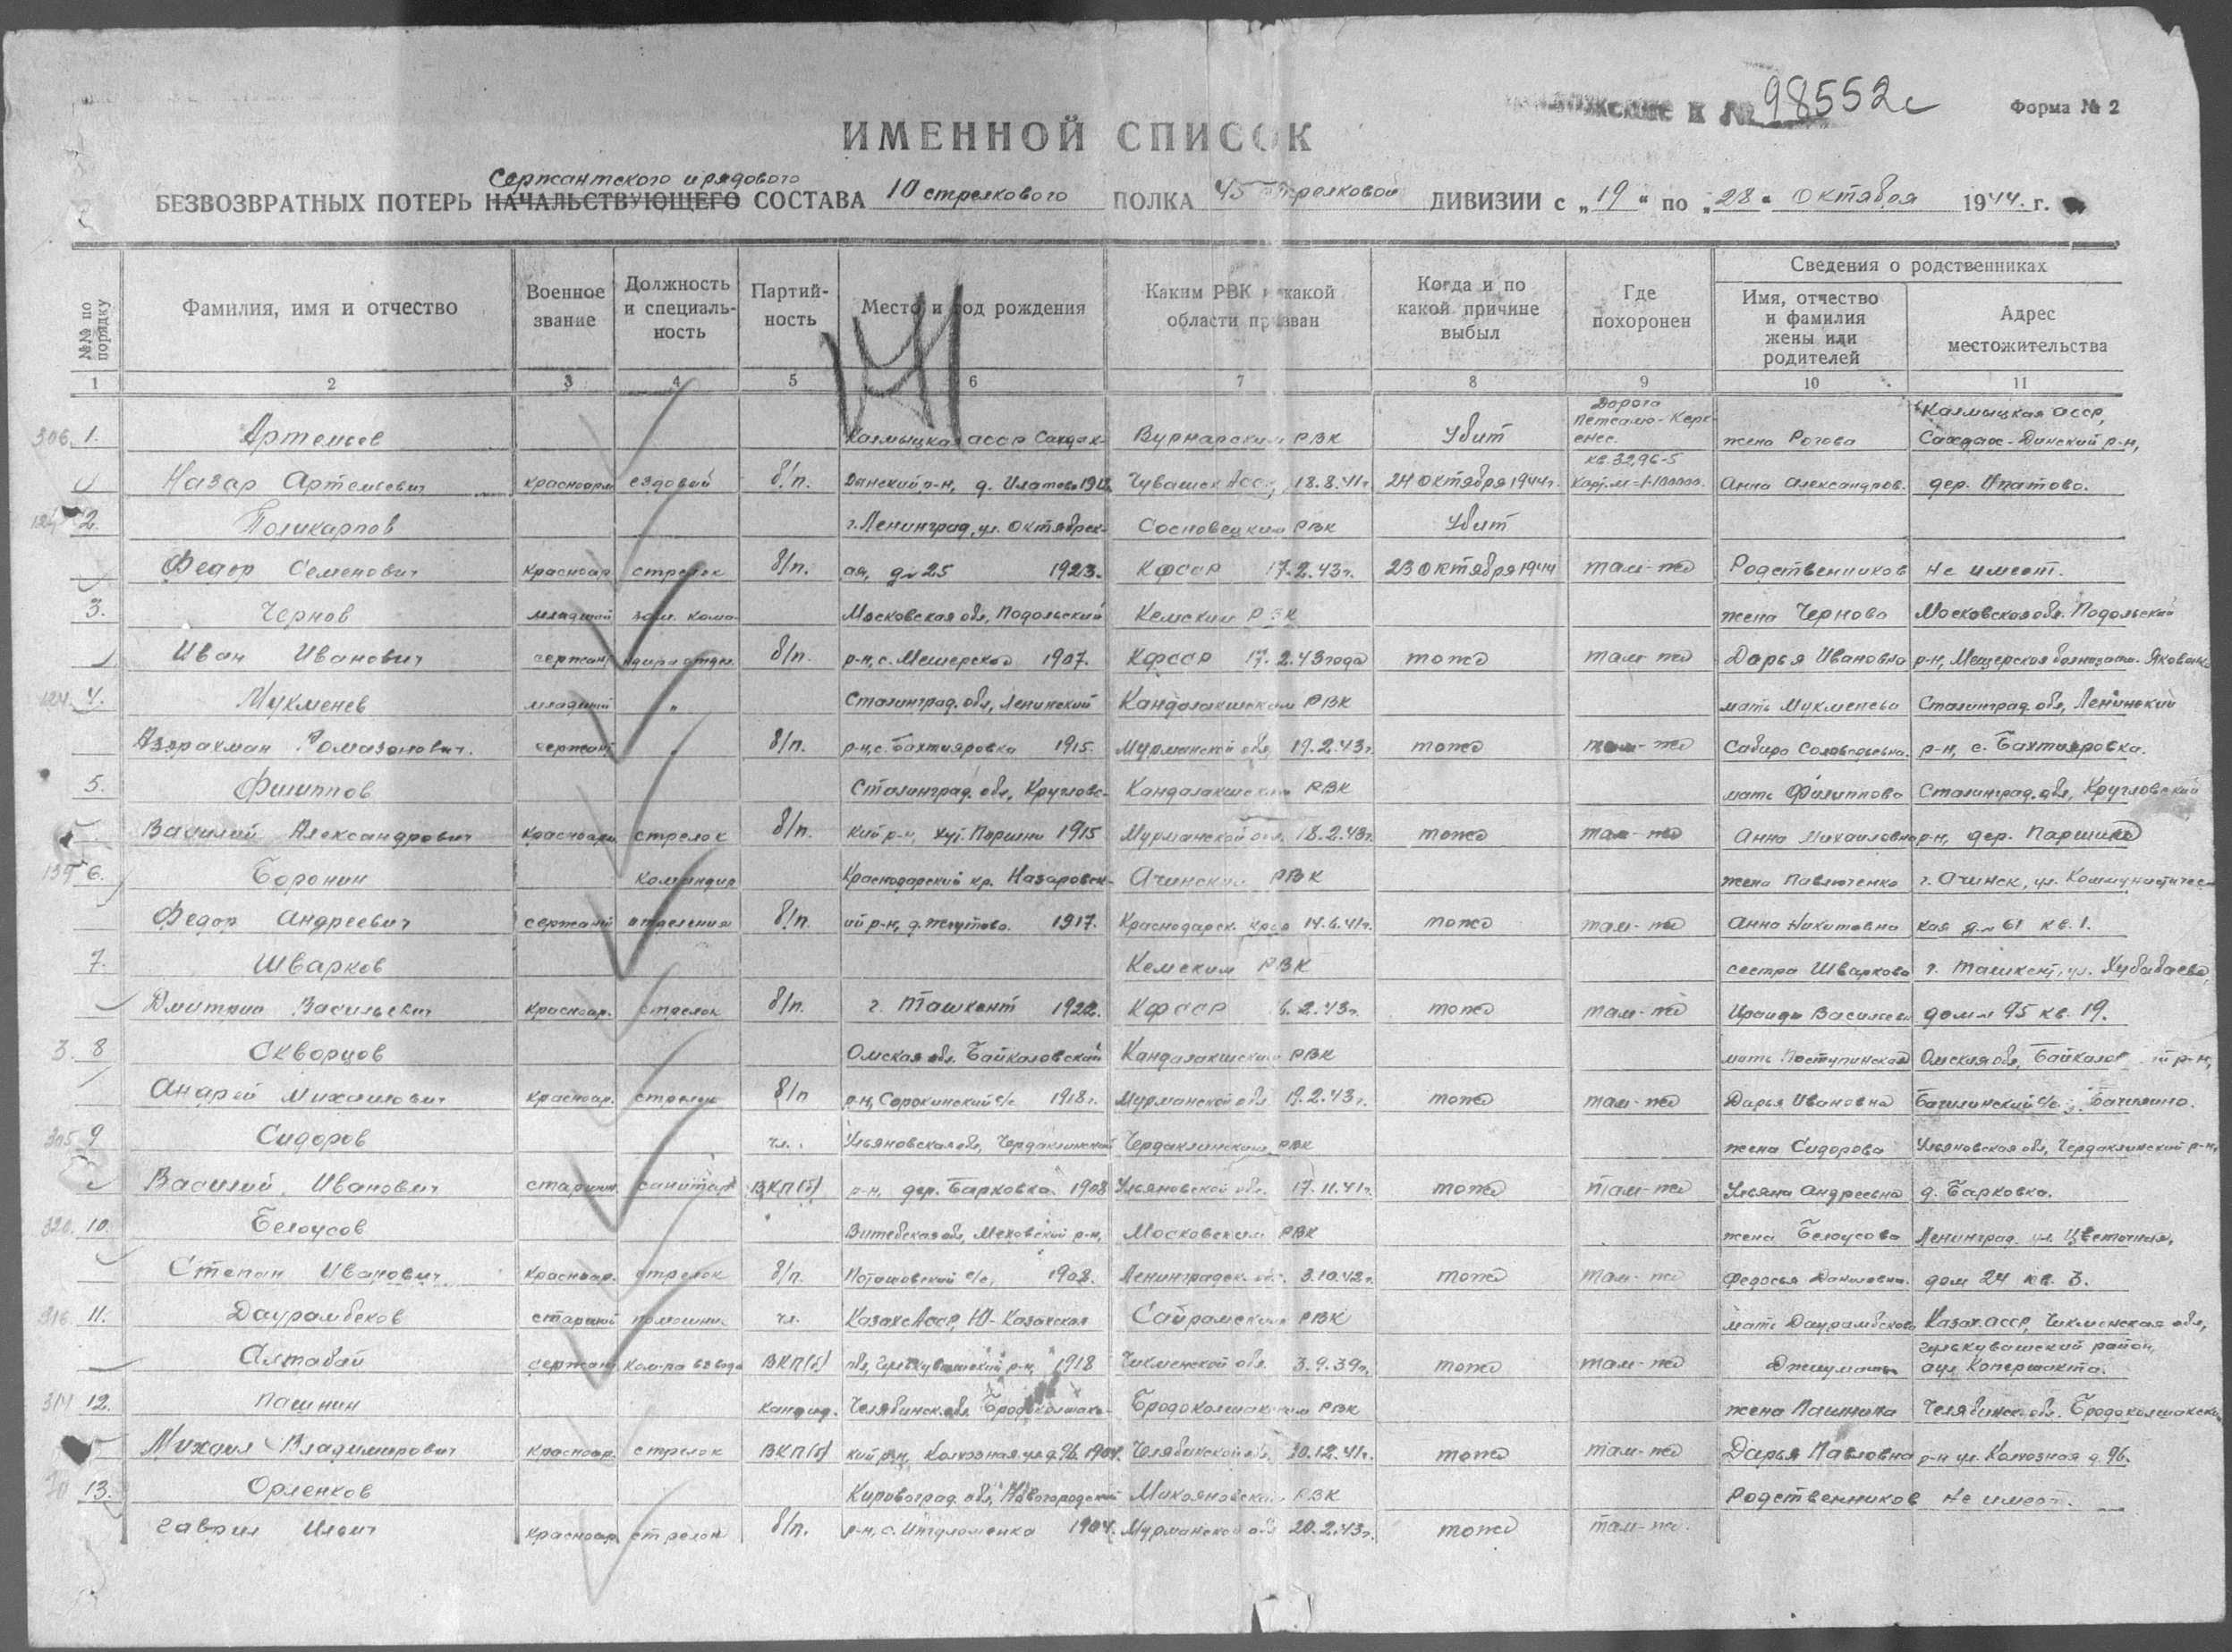 98552с
Форма № 2
ИМЕННОЙ СПИСОК
Сержантского и рядового
БЕЗВОЗВРАТНЫХ ПОТЕРЬ НАЧАЛЬСТВУЮЩЕГО СОСТАВА 10 стрелкового ПОЛКА 45 стрелковой ДИВИЗИИ с „19“ по „28“ октября 1944 г.
№№ по порядку
Фамилия, имя и отчество
Военное звание
Должность и специаль-ность
Партий-ность
Место и год рождения
Каким РВК и какой области призван
Когда и по какой причине выбыл
Где похоронен
Сведения о родственниках
Имя, отчество и фамилия жены или родителей
Адрес местожительства
1 2 3 4 5 6 7 8 9 10 11
141
Дорога
Петсамо-Кирк- Калмыцкая асср,
306. 1. Артемьев Калмыцкая асср Вурнарским РВК Убит енес. жена Рогова
кв. 3296-5
Назар Артемьевич красноарм ездовой б/п. р-н, д. Чувашск Асср, 18.8.41г 24 октября 1944г. Анна Александров. дер. Ипатово.
2. Поликарпов г. Ленинград, ул. Октябрьс- Сосновецким РВК Убит
Федор Семенович красноар стрелок б/п. ая, д 25 1923. КФССР 17.2.43г. 23 октября 1944 там-же Родственников не имеет.
3. Чернов младший зам. кома- Московская обл, Подольский Кемским РВК жена Чернова Московская обл. Подольский
Иван Иванович сержант ндира отдел. б/п. р-н, с. Мещерское 1907. КФССР 17.2.43 года тоже там-же Дарья Ивановна р-н, Мещерская
124. 4. Мукменев младший „ Сталинград. обл, Ленинский Кандалакшским РВК мать Мукменева Сталинград. обл, Ленинский
сержант „ б/п. р-н, с. Бахтияровка 1915. Мурманской обл, 19.2.43г тоже там-же Сабира р-н, с. Бахтияровка.
5. Филиппов Сталинград. обл, Кругловс- Кандалакшским РВК мать Филиппова Сталинград. обл, Кругловский
Василий Александрович красноарм стрелок б/п. кий р-н, хут. 1915 Мурманской обл. 18.2.43г. тоже там-же Анна Михайловна р-н, дер.
6. Боронин командир Краснодарский кр. Назаровск- Ачинским РВК жена Павлюченко г. Ачинск, ул. Коммунистичес-
Федор Андреевич сержант отделения б/п. ий р-н, д. 1917. Краснодарск. края 14.6.41г. тоже там-же Анна Никитовна кая д. 61 кв. 1.
7. Шварков Кемским РВК сестра Шваркова г. Ташкент, ул.
Дмитрий Васильевич красноар. стрелок б/п. г. Ташкент 1922. КФССР 6.2.43г. тоже там-же дом 95 кв. 19.
3. 8 Скворцов Омская обл. Байкаловский Кандалакшским РВК мать Поступинская Омская обл, Байкалов р-н,
Андрей Михайлович красноар. стрелок б/п р-н, Сорокинский с/с 1918г. Мурманской обл 19.2.43г. тоже там-же Дарья Ивановна
305 9 Сидоров чл. Ульяновская обл, Чердаклинский Чердаклинским РВК жена Сидорова Ульяновская обл, Чердаклинский р-н,
Василий Иванович старшин. санитар ВКП(б) р-н, дер. Барковка. 1908 Ульяновской обл. 17.11.41г. тоже там-же Ульяна Андреевна д. Барковка.
320. 10. Белоусов Витебская обл, Меховский р-н, Московским РВК жена Белоусова Ленинград. ул. Цветочная,
Степан Иванович. красноар. стрелок б/п. с/с, 1908. Ленинградск. обл. 3.10.42г. тоже там-же Федосья дом 24 кв. 3.
316. 11. Даурамбеков старший помошник чл. Казахс Асср, Ю-Казахская Сайрамским РВК мать Даурамбекова Казах. асср, Чикменская обл,
район,
Алтабай сержант ком-ра взвода ВКП(б) обл, р-н, 1918 Чикменской обл. 3.9.39г. тоже там-же аул
314 12. Пашнин кандид. Челябинск. обл. Бродоколмакс- Бродоколмакским РВК жена Пашнина Челябинск. обл. Бродоколмакский
Михаил Владимирович красноар. стрелок ВКП(б) кий р-н, Колхозная ул д. 96. 1904. Челябинской обл, 30.12.41г. тоже там-же Дарья Павловна р-н ул. Колхозная д. 96.
13. Орленков Кировоград. обл, Новогородский Микояновским РВК Родственников не имеет.
Гаврил Ильич красноар стрелок б/п. р-н, с. 1904. Мурманской обл 20.2.43г. тоже там-же.